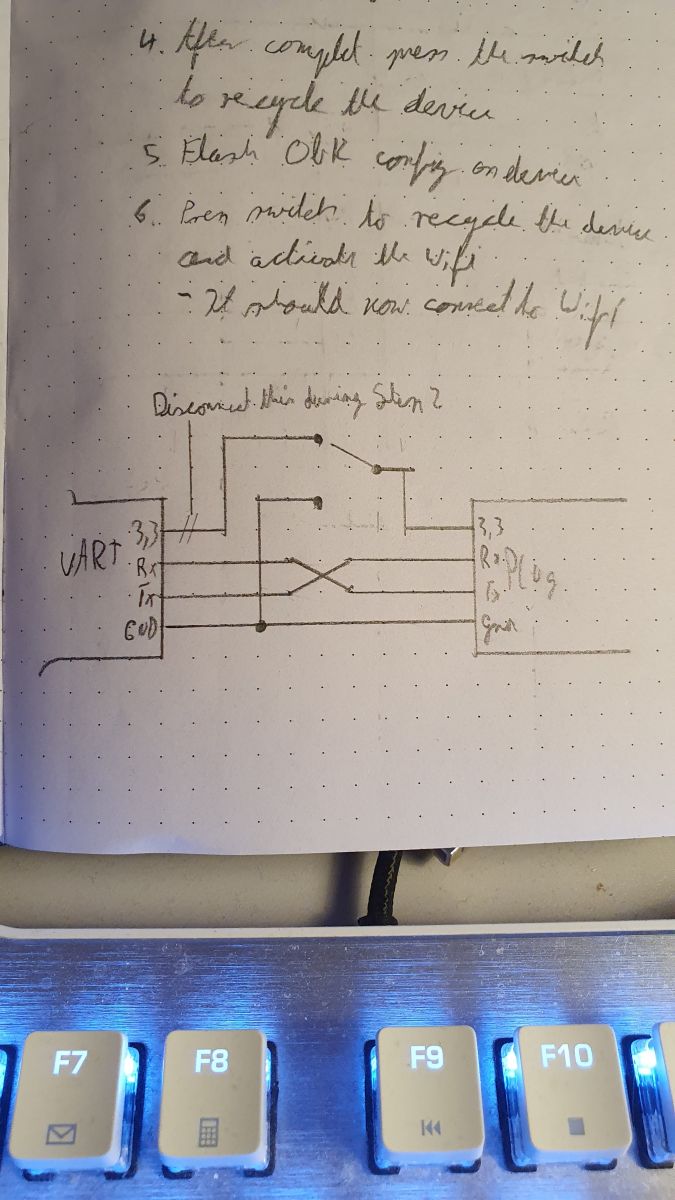 4. After complet press the switch
to recycle the device
5 Flash OBK config on device
6. Press switch to recycle the device
and activate the Wifi
- It should now connect to Wifi
Disconnect this during Step 2
3,3
3,3
UART
Rx
Rx
Plug
Tx
Tx
GND
Gnd
F7
F8
F9
F10